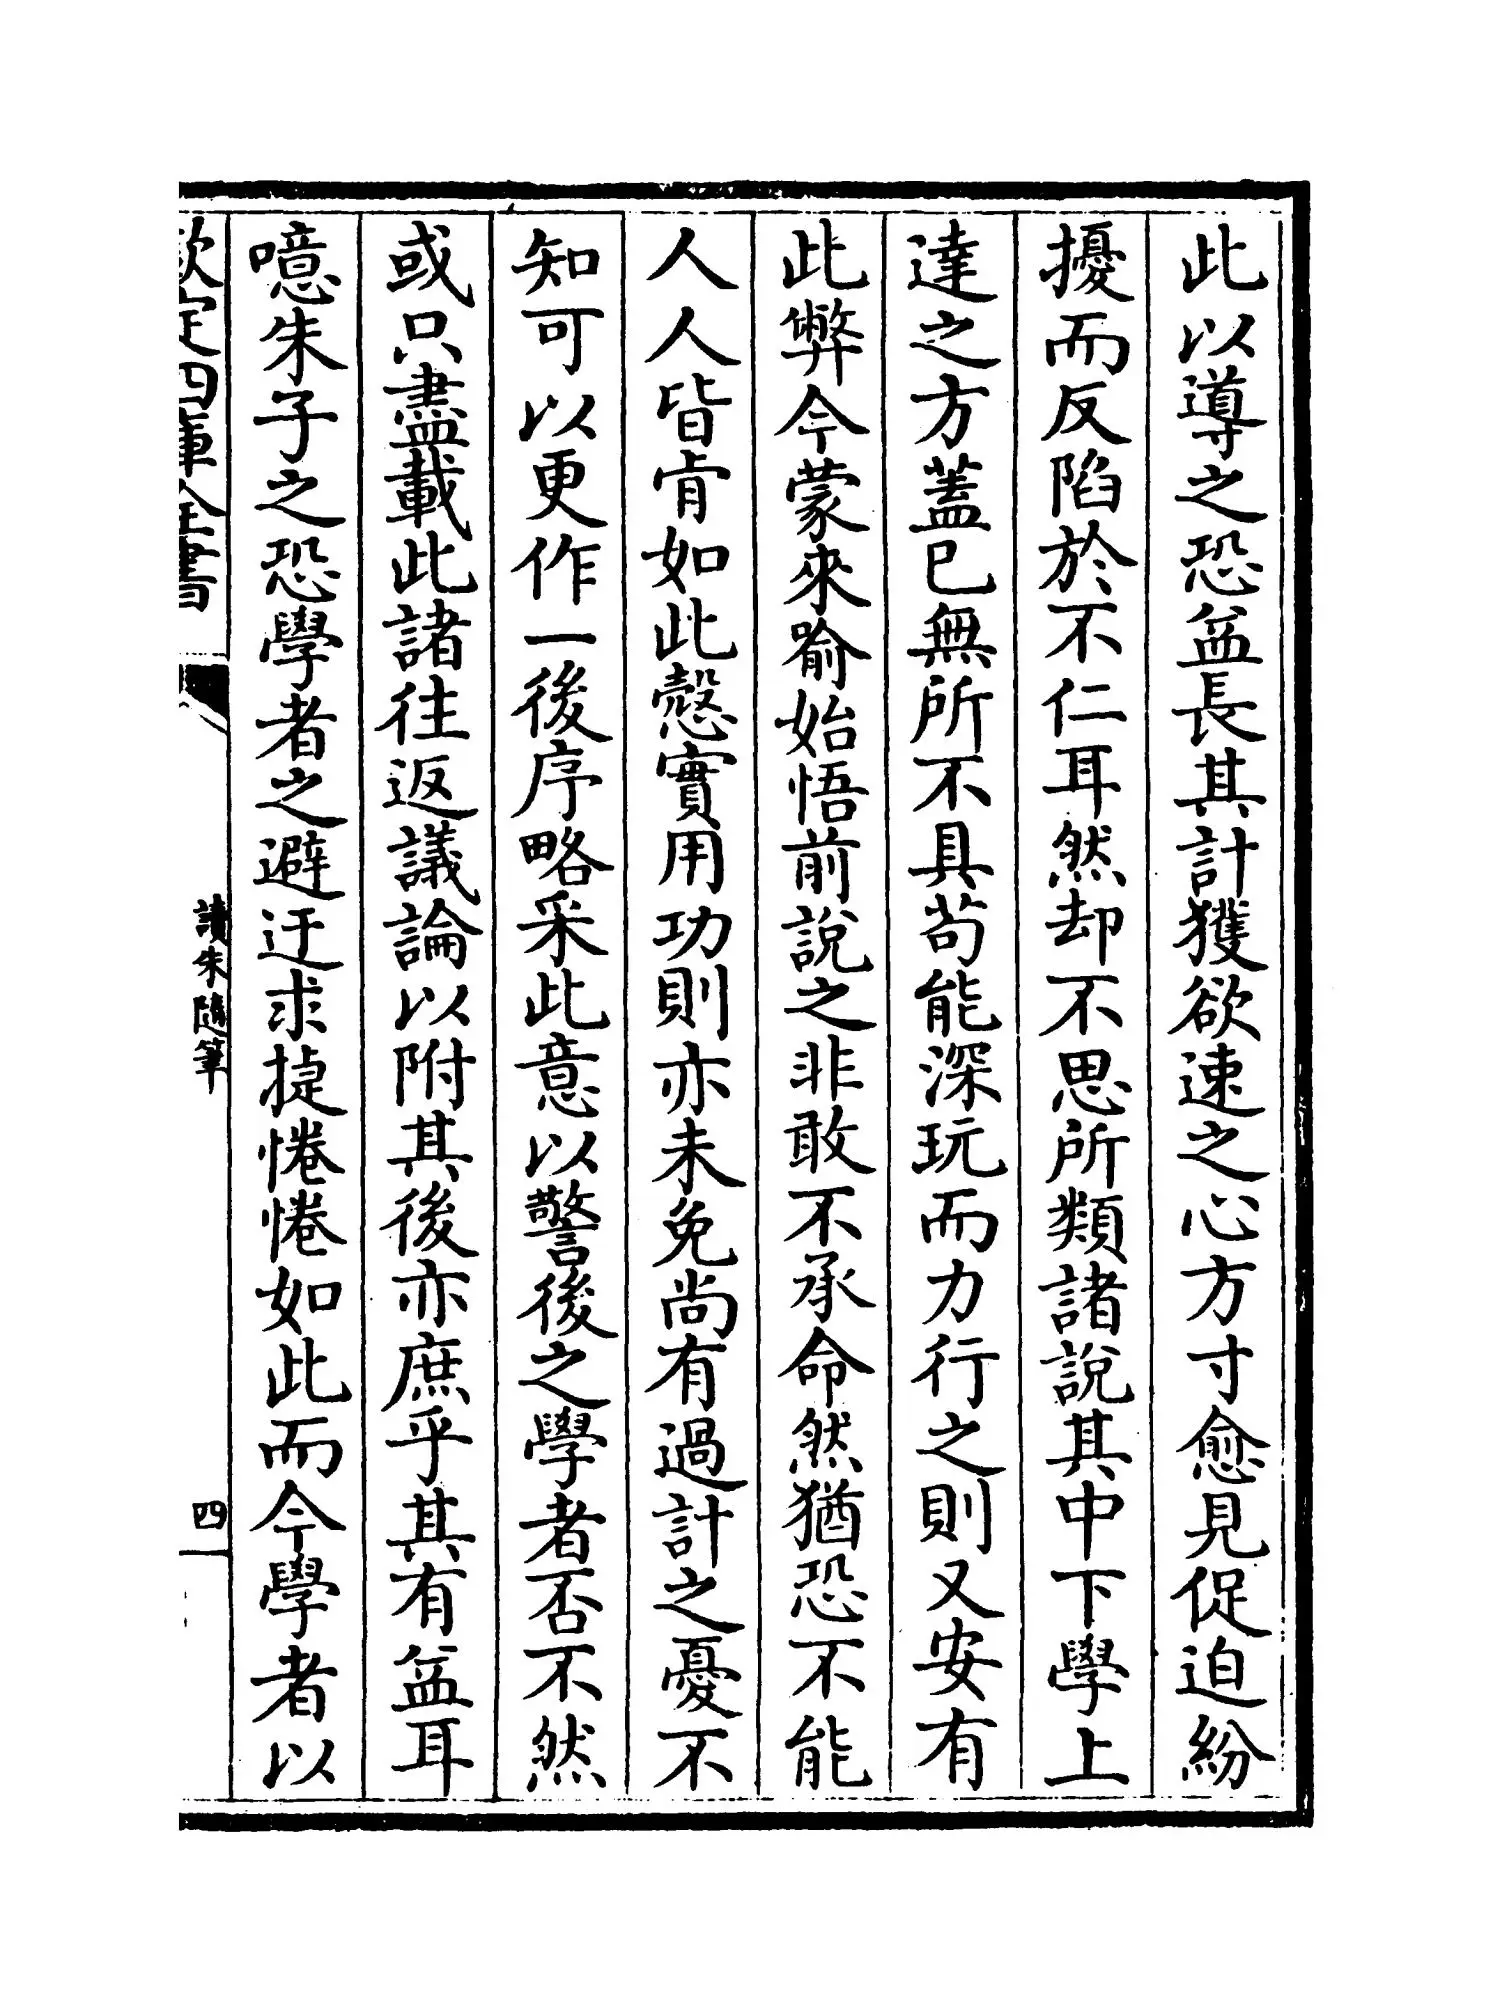 此以導之恐益長其計獲欲速之心方寸愈見促迫紛
擾而反陷於不仁耳然却不思所類諸說其中下學上
達之方蓋已無所不具茍能深玩而力行之則又安有
此弊今蒙來喻始悟前說之非敢不承命然猶恐不能
人人皆肯如此慤實用功則亦未免尚有過計之憂不
知可以更作一後序略采此意以警後之學者否不然
或只盡載此諸往返議論以附其後亦庶乎其有益耳
噫朱子之恐學者之避迂求捷惓惓如此而今學者以
欽定四庫全書
讀朱隨筆
四